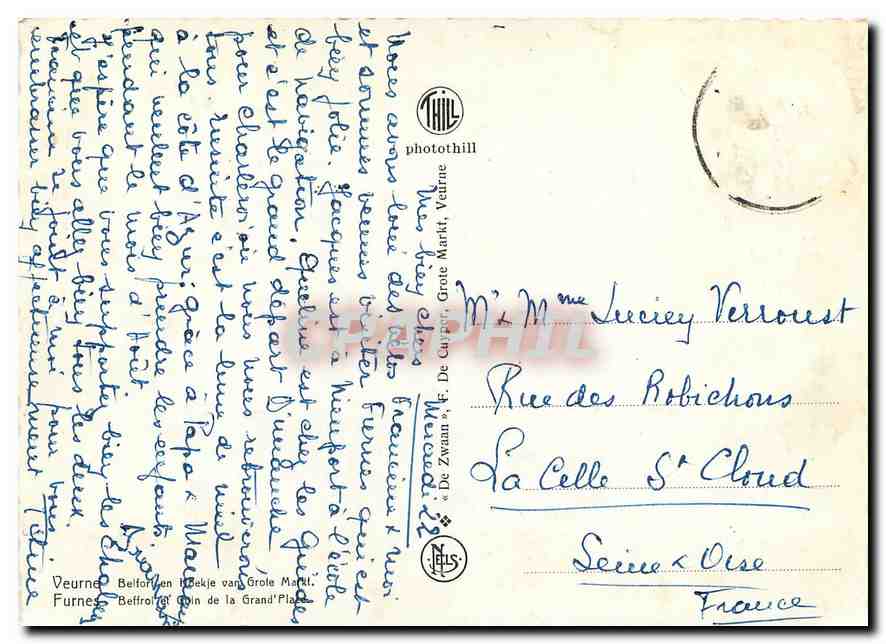 Mercredi 22
Mes bien chers
Nous avons loué des vélos Francine & moi
et sommes venus visiter Furnes qui est
bien jolie. Jacques est à Nieuport à l'école
de navigation, est chez les Guides
et c'est le grand départ Dimanche
pour Charleroi où nous nous retrouverons
tous. Ensuite c'est la lune de miel
à la côte d'Azur, grâce à Papa & Maman
qui veulent bien prendre les enfants
pendant le mois d'Août.
J'espère que vous supportez bien les chaleurs
et que vous allez bien tous les deux.
Francine se joint à moi pour vous
embrasser bien affectueusement
THILL
photothill
« De Zwaan », F. De Cuyper, Grote Markt, Veurne
NELS
Mr & Mme Lucien Verroust
Rue des Robichons
La Celle St Cloud
Seine & Oise
France
Veurne Belfort en Hoekje van Grote Markt.
Furnes Beffroi et Coin de la Grand'Place.
CPAPHIL